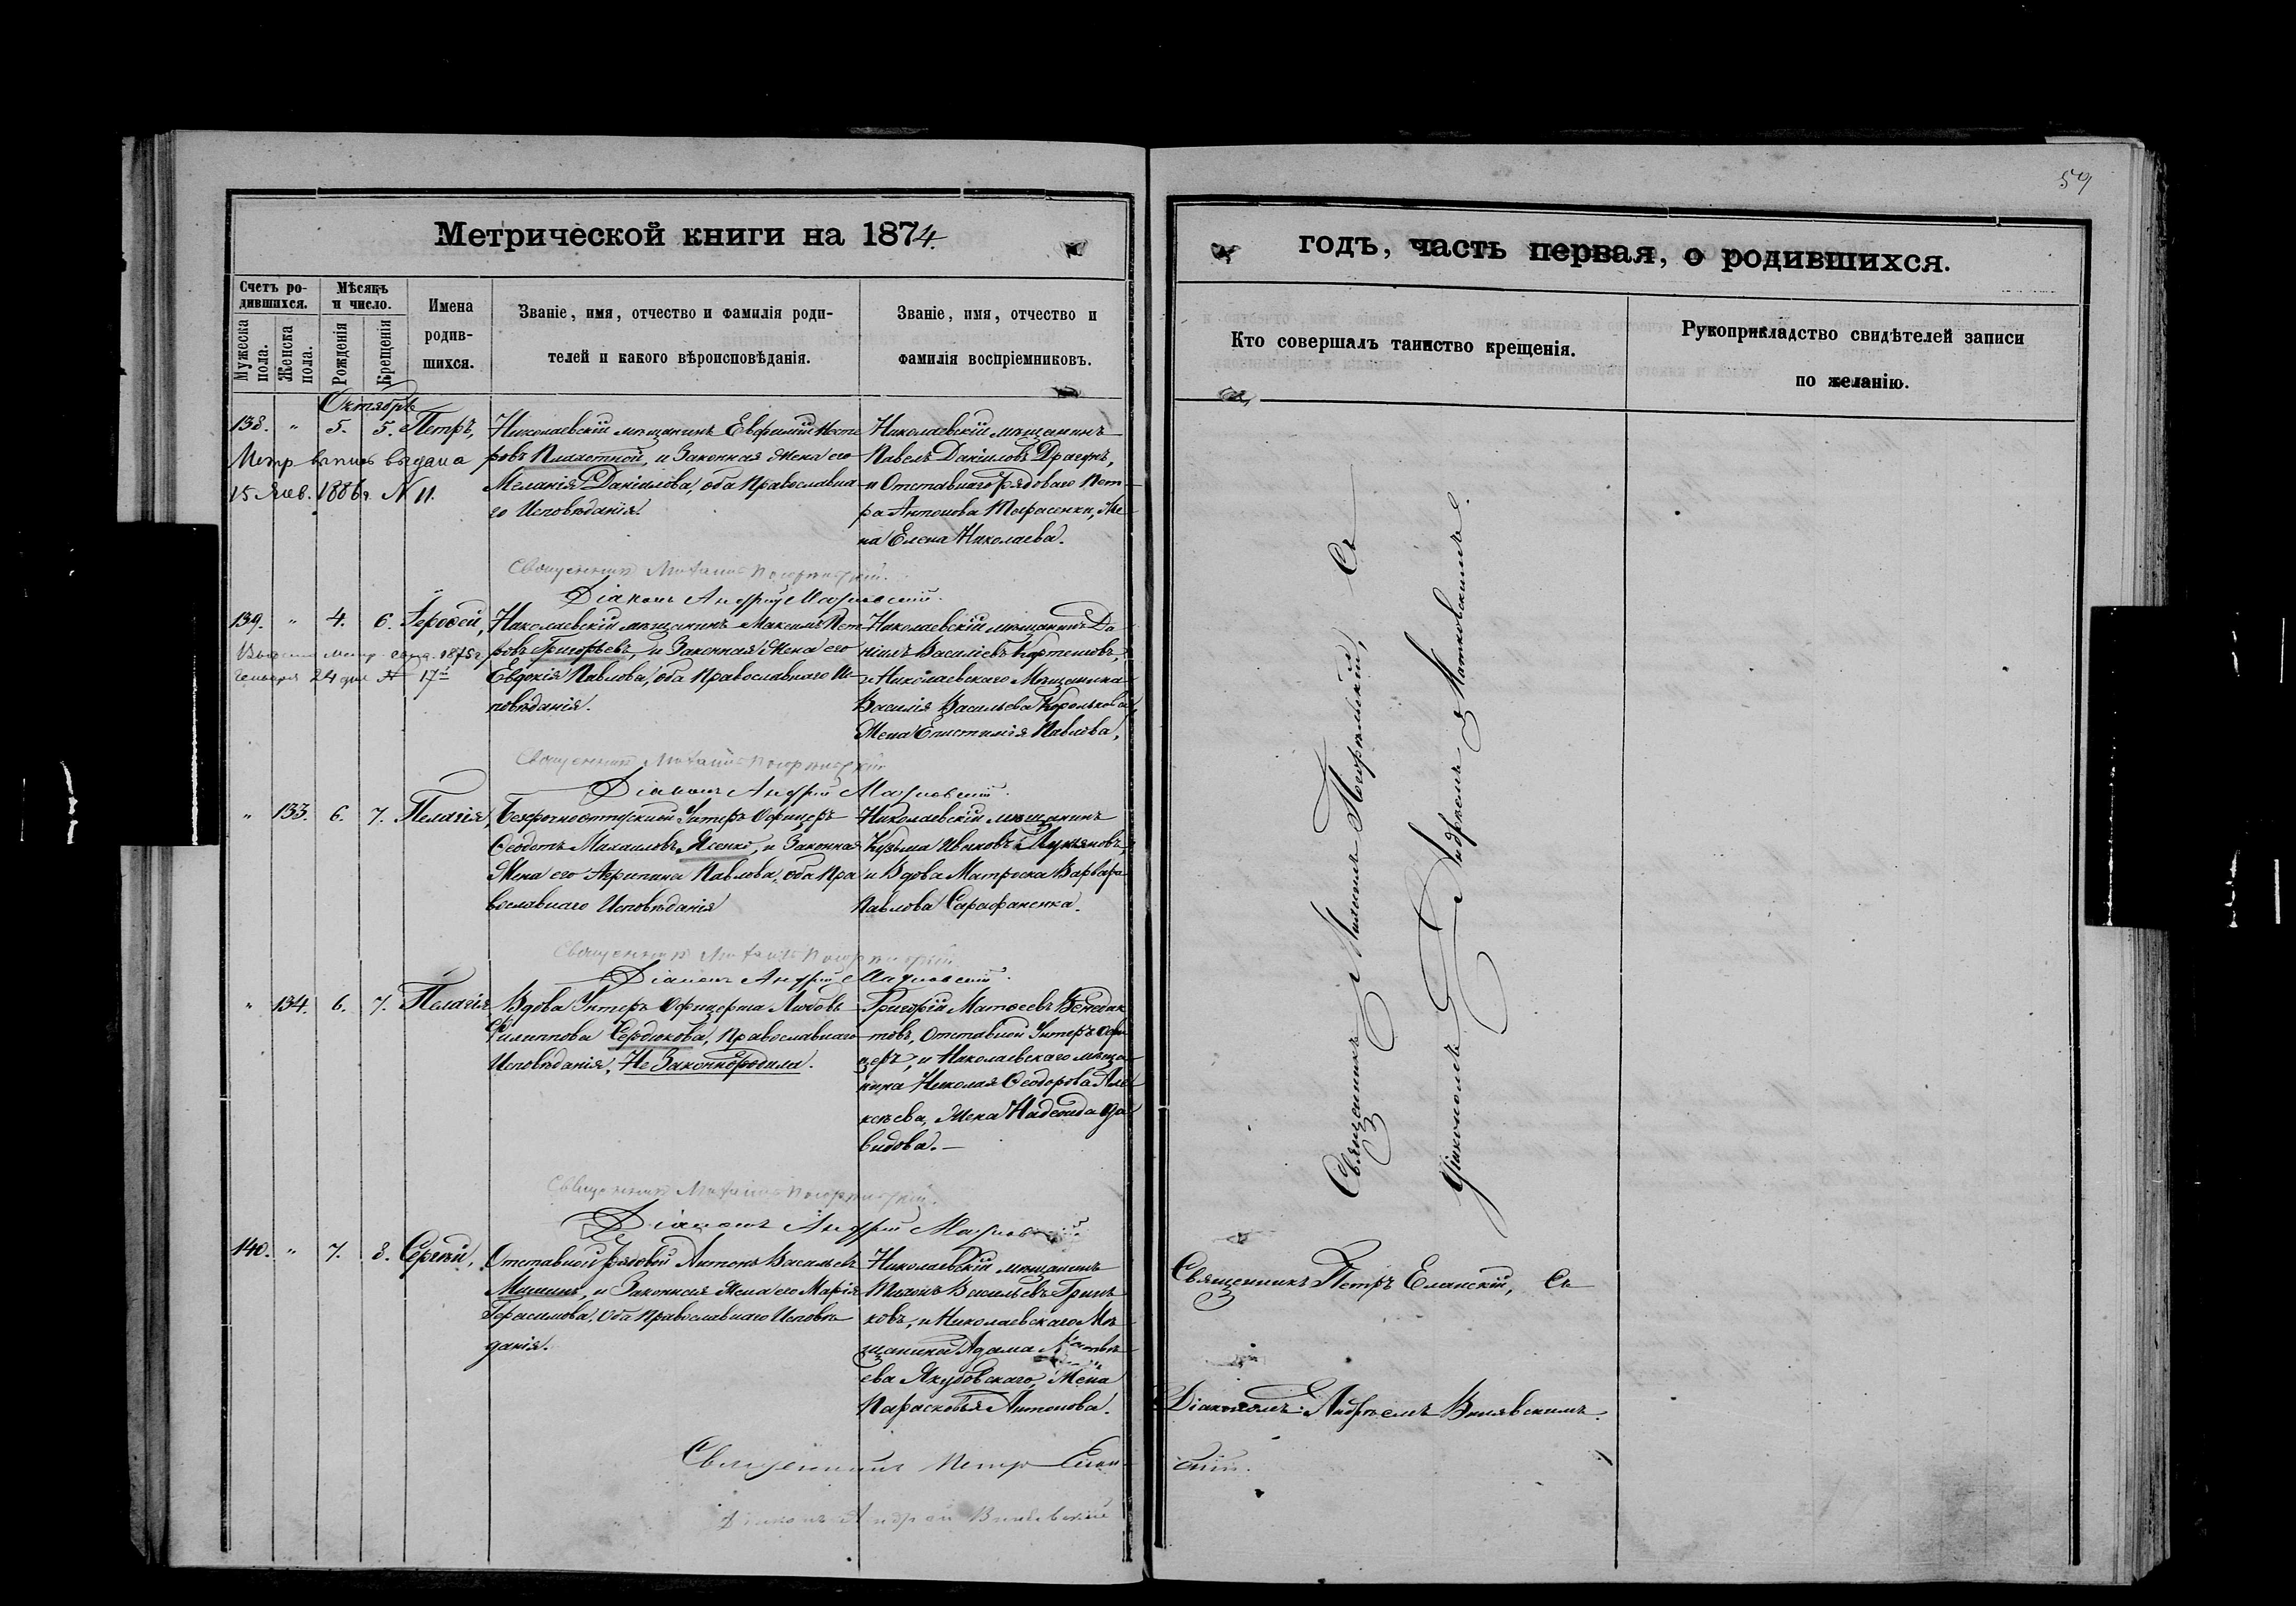 59
Метрической книги на 1874.
годъ, часть первая, о родившихся.
Счетъ ро-
дившихся.
Мужеска
пола.
Женска
пола.
Мѣсяцъ
и число.
Рожденія
Крещенія
Имена
родив-
шихся.
Званіе, имя, отчество и фамилія роди-
телей и какого вѣроисповѣданія.
Званіе, имя, отчество и
фамилія воспріемниковъ.
Кто совершалъ таинство крещенія.
Рукоприкладство свидѣтелей записи
по желанію.
Октябрь
138. " 5. 5. Петръ,
Метр выпись выдана
15 Янв. 1886г. N 11.
Николаевскій мѣщанинъ Евфимій
ровъ и Законная Жена его
Меланія Даніилова, оба Православна
го Исповѣданія.
Николаевскій мѣщанинъ
Павелъ Даніиловъ Драгунъ,
и Отставнаго Рядоваго Пет
ра Антонова Тарасенки, Же
на Елена Николаева.
Священникъ Михаилъ Погорѣльскій.
Діаконъ Андрей
139. " 4. 6. Іероѳей,
1875г
генваря 24 дня № 17й
Николаевскій мѣщанинъ Максимъ Пет
ровъ Григорьевъ, и Законная Жена его
Евдокія Павлова, оба Православнаго Ис
повѣданія.
Николаевскій мѣщанинъ Да
ніилъ Василіевъ
и Николаевскаго Мѣщанина
Василія Васильева Королькова
Жена Епистимія Павлова,
Священникъ Михаилъ Погорѣльскій
Діаконъ Андрей
" 133. 6. 7. Пелагія,
Безсрочноотпускной Унтеръ Офицеръ
Ѳеодотъ Михаиловъ Ясенко, и Законная
Жена его Агрипина Павлова, оба Пра
вославнаго Исповѣданія
Николаевскій мѣщанинъ
Кузьма Ивановъ Лукьяновъ,
и Вдова Матроска Варвара
Павлова Сарафаненка.
Священникъ Михаилъ Погорѣльскій
Діаконъ Андрей
" 134. 6. 7. Пелагія
Вдова Унтеръ Офицерша Любовь
Филиппова Сердюкова, Православнаго
Исповѣданія, Не Законнородила.
Григорій Матѳеевъ Бенедик
товъ, Отставной Унтеръ Офи
церъ, и Николаевскаго мѣща
нина Николая Ѳеодорова Але
ксѣева, Жена Надежда Да
видова.—
Священникъ Михаилъ Погорѣльскій.
Діаконъ Андрей
140. " 7. 8. Сергѣй,
Отставной рядовой Антонъ Васильевъ
Мишинъ, и Законная Жена его Марія
Герасимова, Оба Православнаго Исповѣ
данія.
Николаевскій мѣщанинъ
Тихонъ Васильевъ Грин
ковъ, и Николаевскаго Мѣ
щанина Адама Матвѣ
ева Якубовскаго, Жена
Парасковья Антонова.
Священникъ Петр Елан
скій.
Діаконъ Андрей
Священникъ Михаилъ Погорѣльскій, Съ
Діакономъ Андреемъ
Священникъ Петръ Еланскій, Съ
Діакономъ Андреемъ